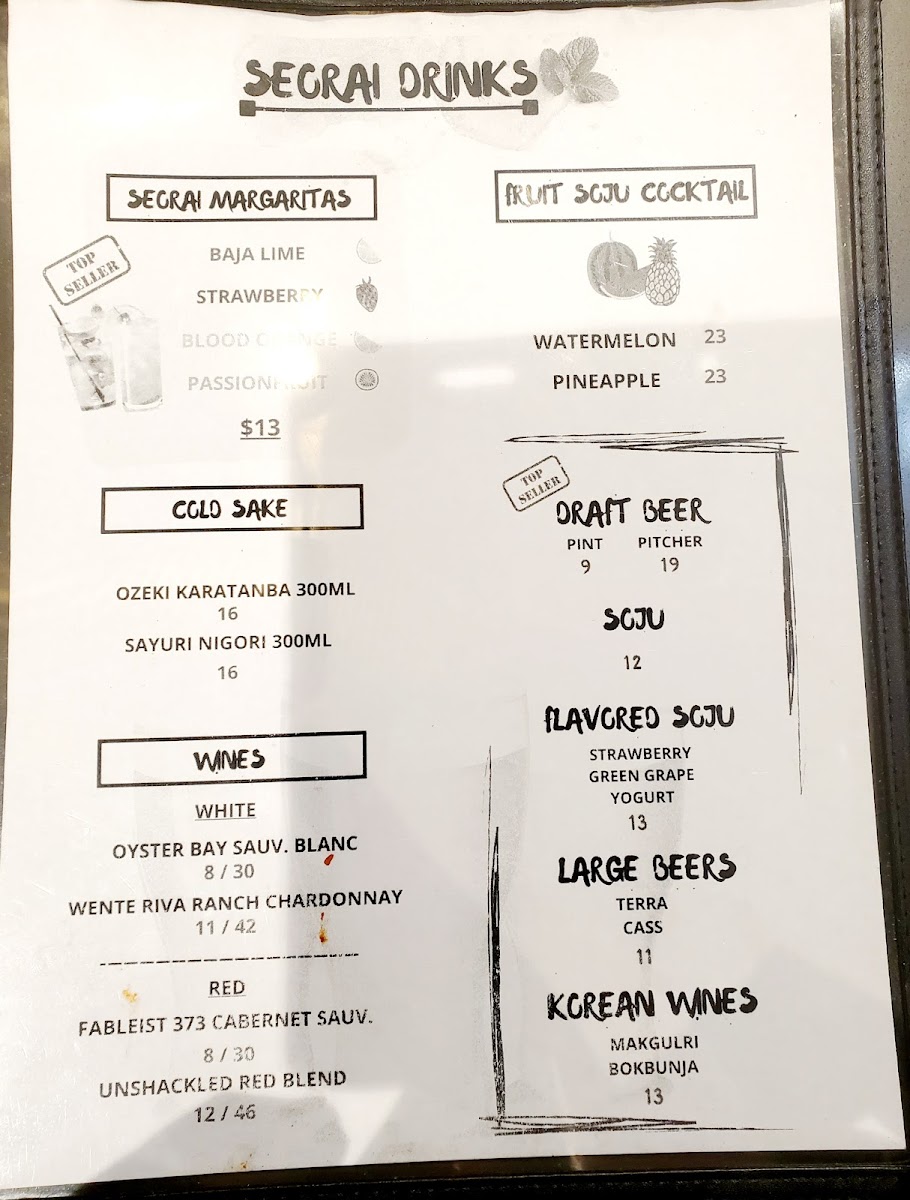 SEORAI DRINKS
SEORAI MARGARITAS
TOP
SELLER
BAJA LIME
STRAWBERRY
BLOOD ORANGE
PASSIONFRUIT
$13
COLD SAKE
OZEKI KARATANBA 300ML
16
SAYURI NIGORI 300ML
16
WINES
WHITE
OYSTER BAY SAUV. BLANC
8 / 30
WENTE RIVA RANCH CHARDONNAY
11 / 42
RED
FABLEIST 373 CABERNET SAUV.
8 / 30
UNSHACKLED RED BLEND
12 / 46
FRUIT SOJU COCKTAIL
WATERMELON 23
PINEAPPLE 23
TOP
SELLER
DRAFT BEER
PINT PITCHER
9 19
SOJU
12
FLAVORED SOJU
STRAWBERRY
GREEN GRAPE
YOGURT
13
LARGE BEERS
TERRA
CASS
11
KOREAN WINES
MAKGULRI
BOKBUNJA
13